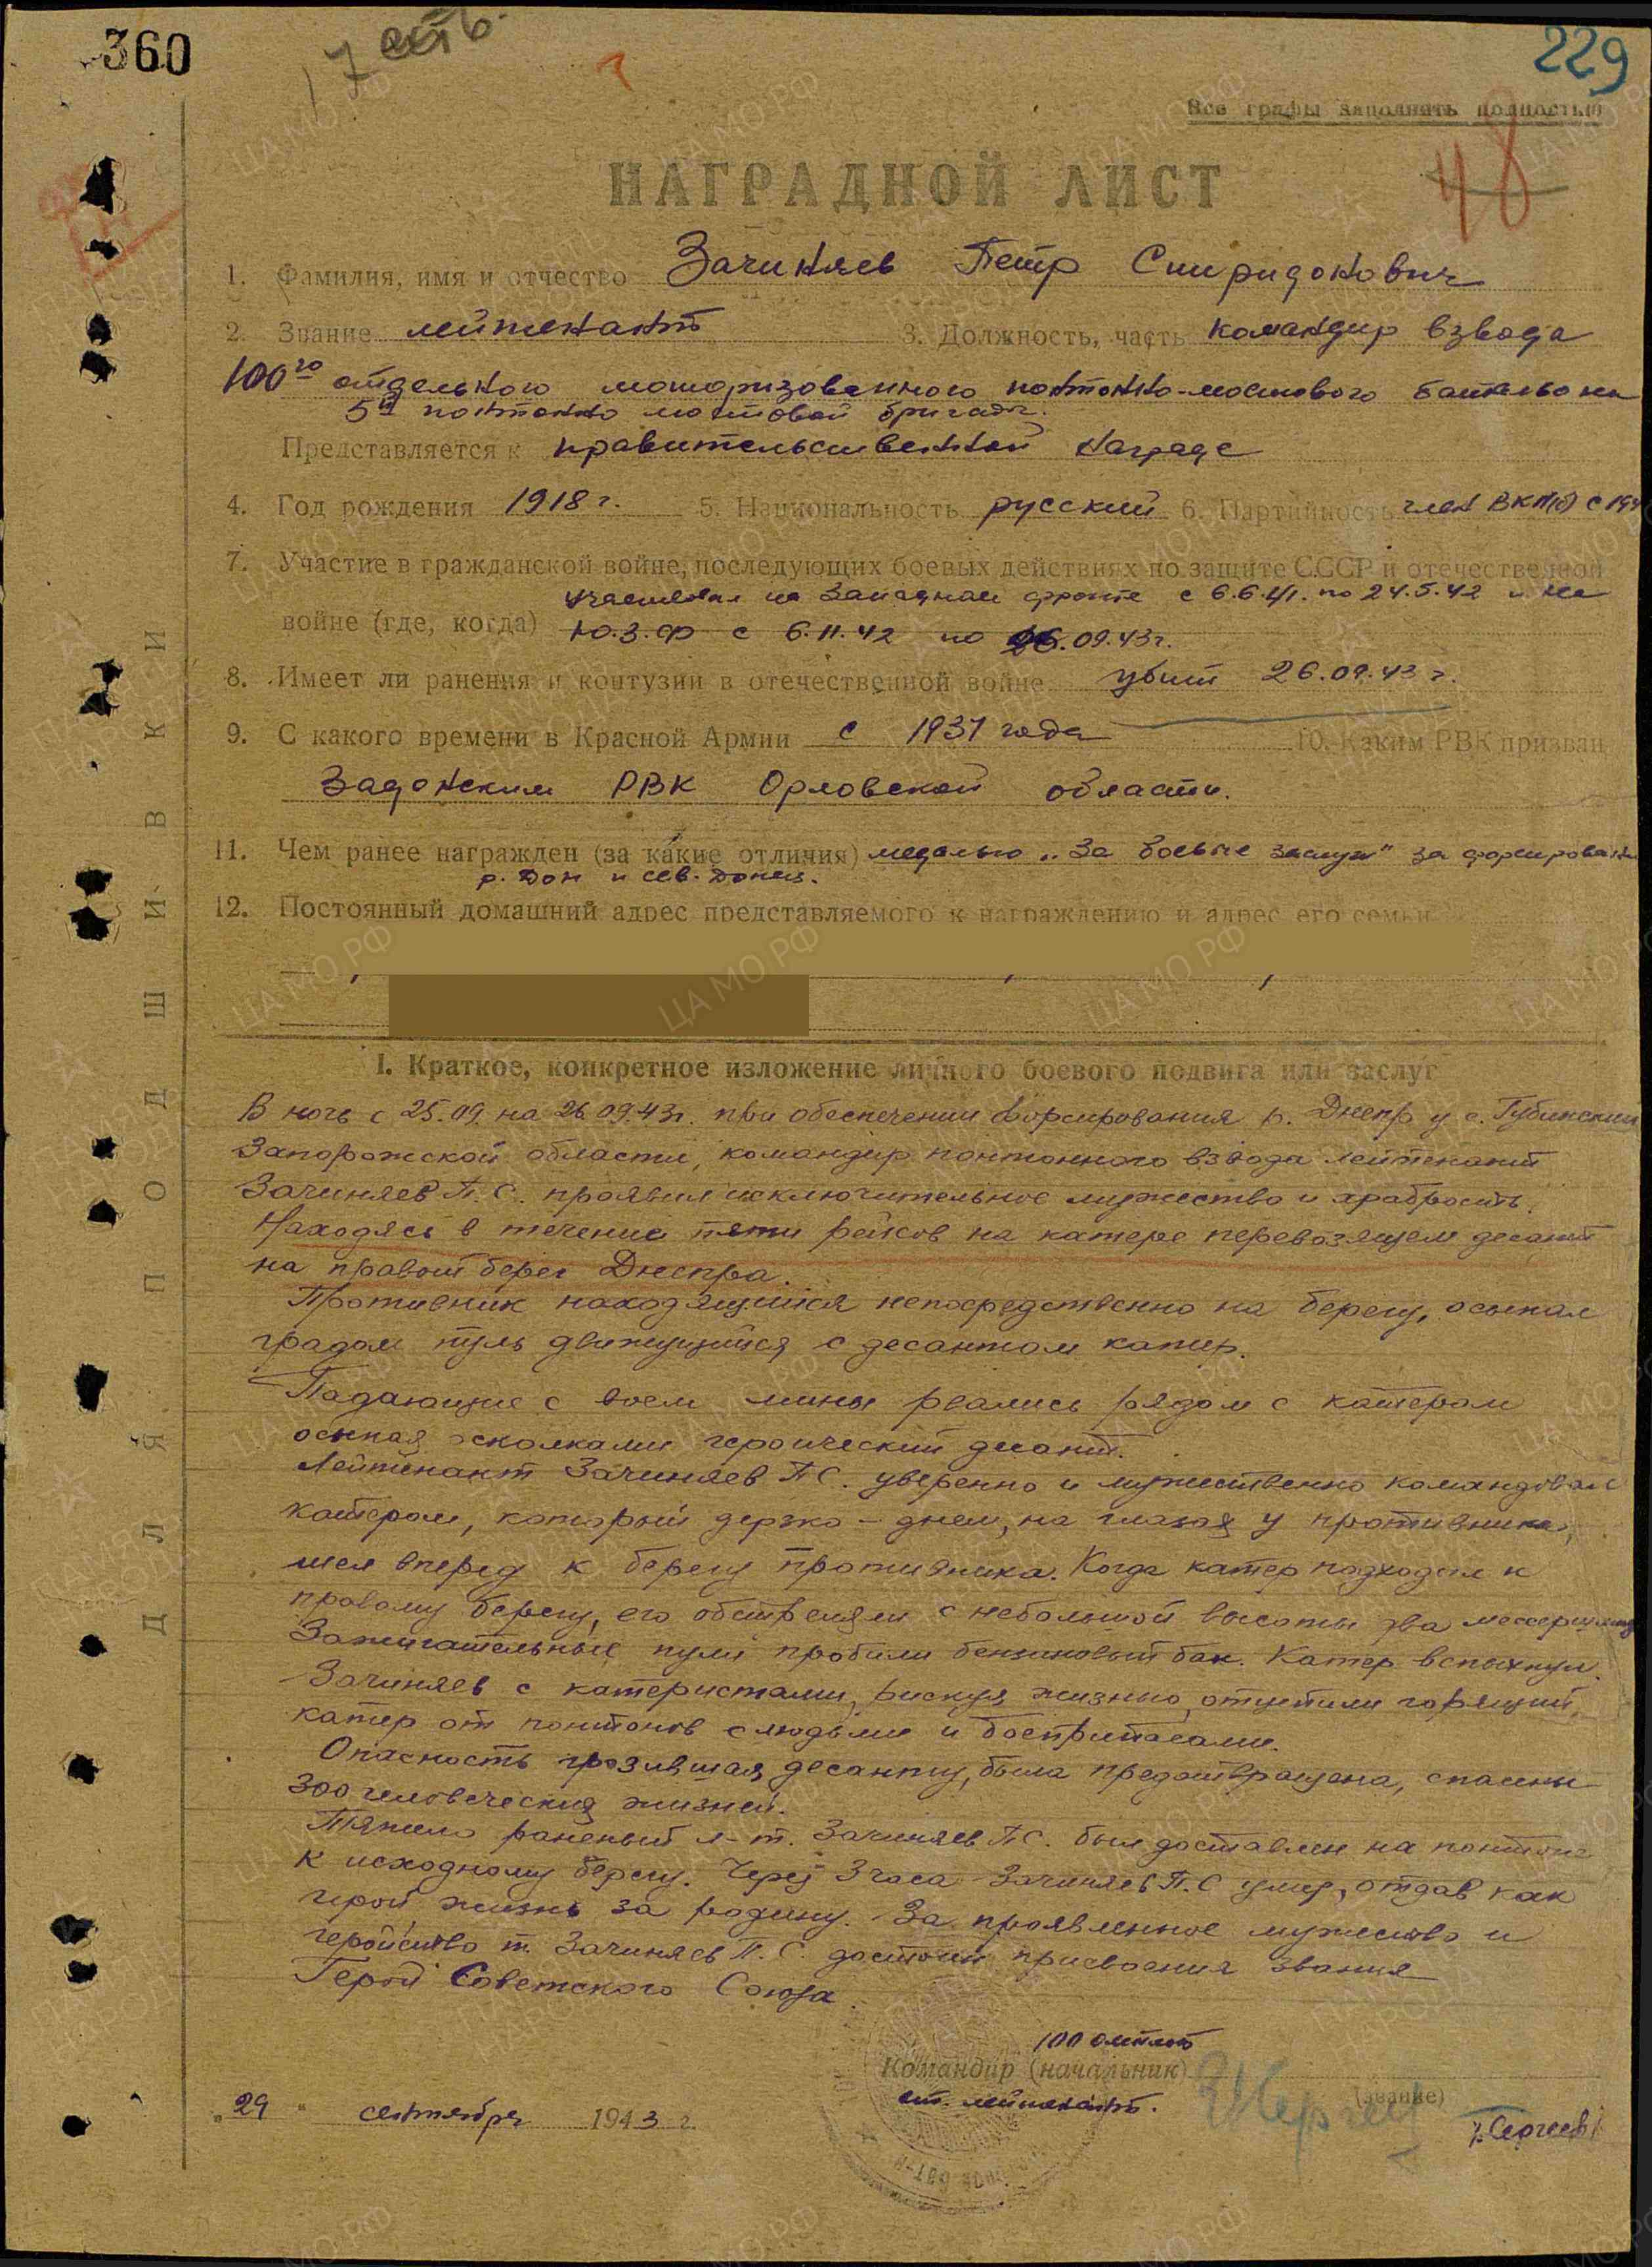 360
229
Все графы заполнять полностью
48
НАГРАДНОЙ ЛИСТ
1. Фамилия, имя и отчество Зачиняев Петр Спиридонович
2. Звание лейтенант 3. Должность, часть командир взвода
100го отдельного моторизованного понтонно-мостового батальона
5й понтонно мостовой бригады.
Представляется к правительственной награде
4. Год рождения 1918 г. 5. Национальность русский 6. Партийность член ВКП(б) с
7. Участие в гражданской войне, последующих боевых действиях по защите СССР и отечественной
участвовал на Западном фронте с 6.6.41. по 24.5.42 и на
войне (где, когда) Ю.З.Ф с 6.11.42 по 26.09.43г.
8. Имеет ли ранения и контузии в отечественной войне убит 26.09.43 г.
9. С какого времени в Красной Армии с 1937 года 10. Каким РВК призван
Задонским РВК Орловской области.
11. Чем ранее награжден (за какие отличия) медалью „За боевые заслуги" за форсирование
р. Дон и сев. Донец.
12. Постоянный домашний адрес представляемого к награждению и адрес его семьи
I. Краткое, конкретное изложение личного боевого подвига или заслуг
В ночь с 25.09. на 26.09.43г. при обеспечении форсирования р. Днепр у с.
Запорожской области, командир понтонного взвода лейтенант
Зачиняев П.С. проявил исключительное мужество и храбрость.
Находясь в течение пяти рейсов на катере перевозящем десант
на правый берег Днепра.
Противник находящийся непосредственно на берегу, осыпал
градом пуль движущийся с десантом катер.
Падающие с воем мины рвались рядом с катером
осыпая осколками героический десант.
Лейтенант Зачиняев П.С. уверенно и мужественно командовал
катером, который дерзко - днем, на глазах у противника,
шел вперед к берегу противника. Когда катер подходил к
правому берегу, его обстреляли с небольшой высоты два
Зажигательные пули пробили бензиновый бак. Катер вспыхнул.
Зачиняев с катеристами, рискуя жизнью, отцепили горящий
катер от понтонов с людьми и боеприпасами.
Опасность грозившая десанту, была предотвращена, спасены
300 человеческих жизней.
Тяжело раненый л-т. Зачиняев П.С. был доставлен на понтоне
к исходному берегу. Через 3 часа Зачиняев П.С умер, отдав как
герой жизнь за родину. За проявленное мужество и
геройство т. Зачиняев П.С. достоин присвоения звания
Герой Советского Союза.
Командир (начальник)
ст. лейтенант.
(звание)
„29" сентября 1943 г.
/Сергеев/
ДЛЯ ПОДШИВКИ